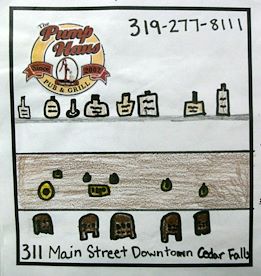 319-277-8111
The
Pump
Haus
Since 2007
PUB & GRILL
311 Main Street Downtown Cedar Falls